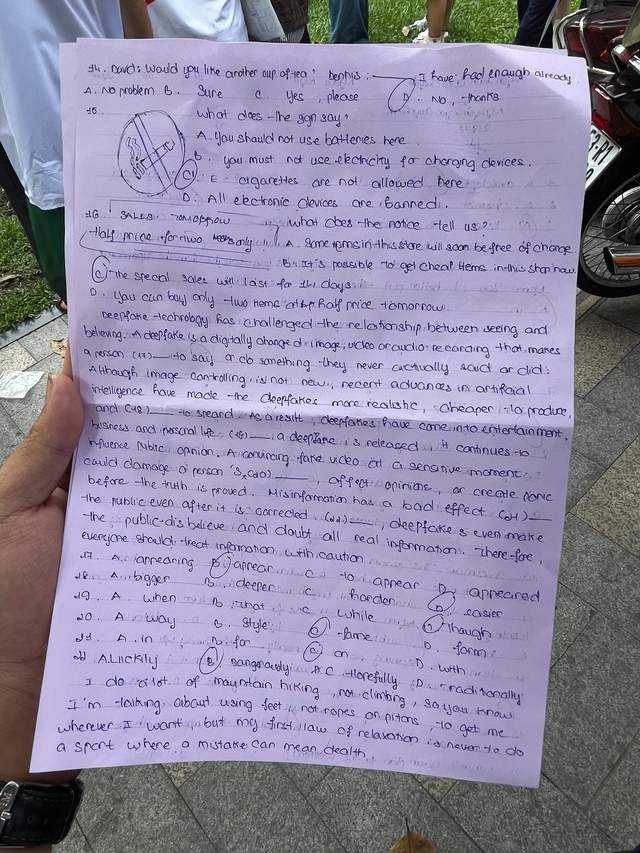 14. David: Would you like another cup of tea? Dennis: ____ I have had enough already
A. No problem B. Sure C. Yes, please D. No, thanks
15. What does the sign say?
A. You should not use batteries here
B. You must not use electricity for charging devices.
C. E - cigarettes are not allowed here
D. All electronic devices are banned.
16. SALES: TOMORROW What does the notice tell us?
Half price for two only A. Some items in this store will soon be free of charge
B. It's possible to get cheap items in this shop now
C. The special sales will last for days
D. You can buy only two items at half price tomorrow.
Deepfake technology has challenged the relationship between seeing and
believing. A deepfake is a digitally changed image, video or audio recording that makes
a person (17) ____ to say or do something they never actually said or did.
Although image controlling is not new, recent advances in artificial
intelligence have made the deepfakes more realistic, cheaper to produce,
and (18) ____ to spread. As a result, deepfakes have come into entertainment,
business and personal life. (19) ____ a deepfake is released, it continues to
influence public opinion. A convincing fake video at a sensitive moment
could damage a person's (20) ____, affect opinions, or create panic
before the truth is proved. Misinformation has a bad effect (21) ____
the public even after it is corrected. (22) ____, deepfakes even make
the public disbelieve and doubt all real information. Therefore,
everyone should treat information with caution.
17. A. appearing B. appear C. to appear D. appeared
18. A. bigger B. deeper C. harder D. easier
19. A. when B. that C. while D. though
20. A. way B. style C. fame D. form
21. A. in B. for C. on D. with
22 A. Luckily B. Dangerously C. Hopefully D. Traditionally
I do a lot of mountain hiking, not climbing, so you know
I'm talking about using feet, not ropes on pitons, to get me
wherever I want, but my first law of relaxation is never to do
a sport where a mistake can mean dealth.